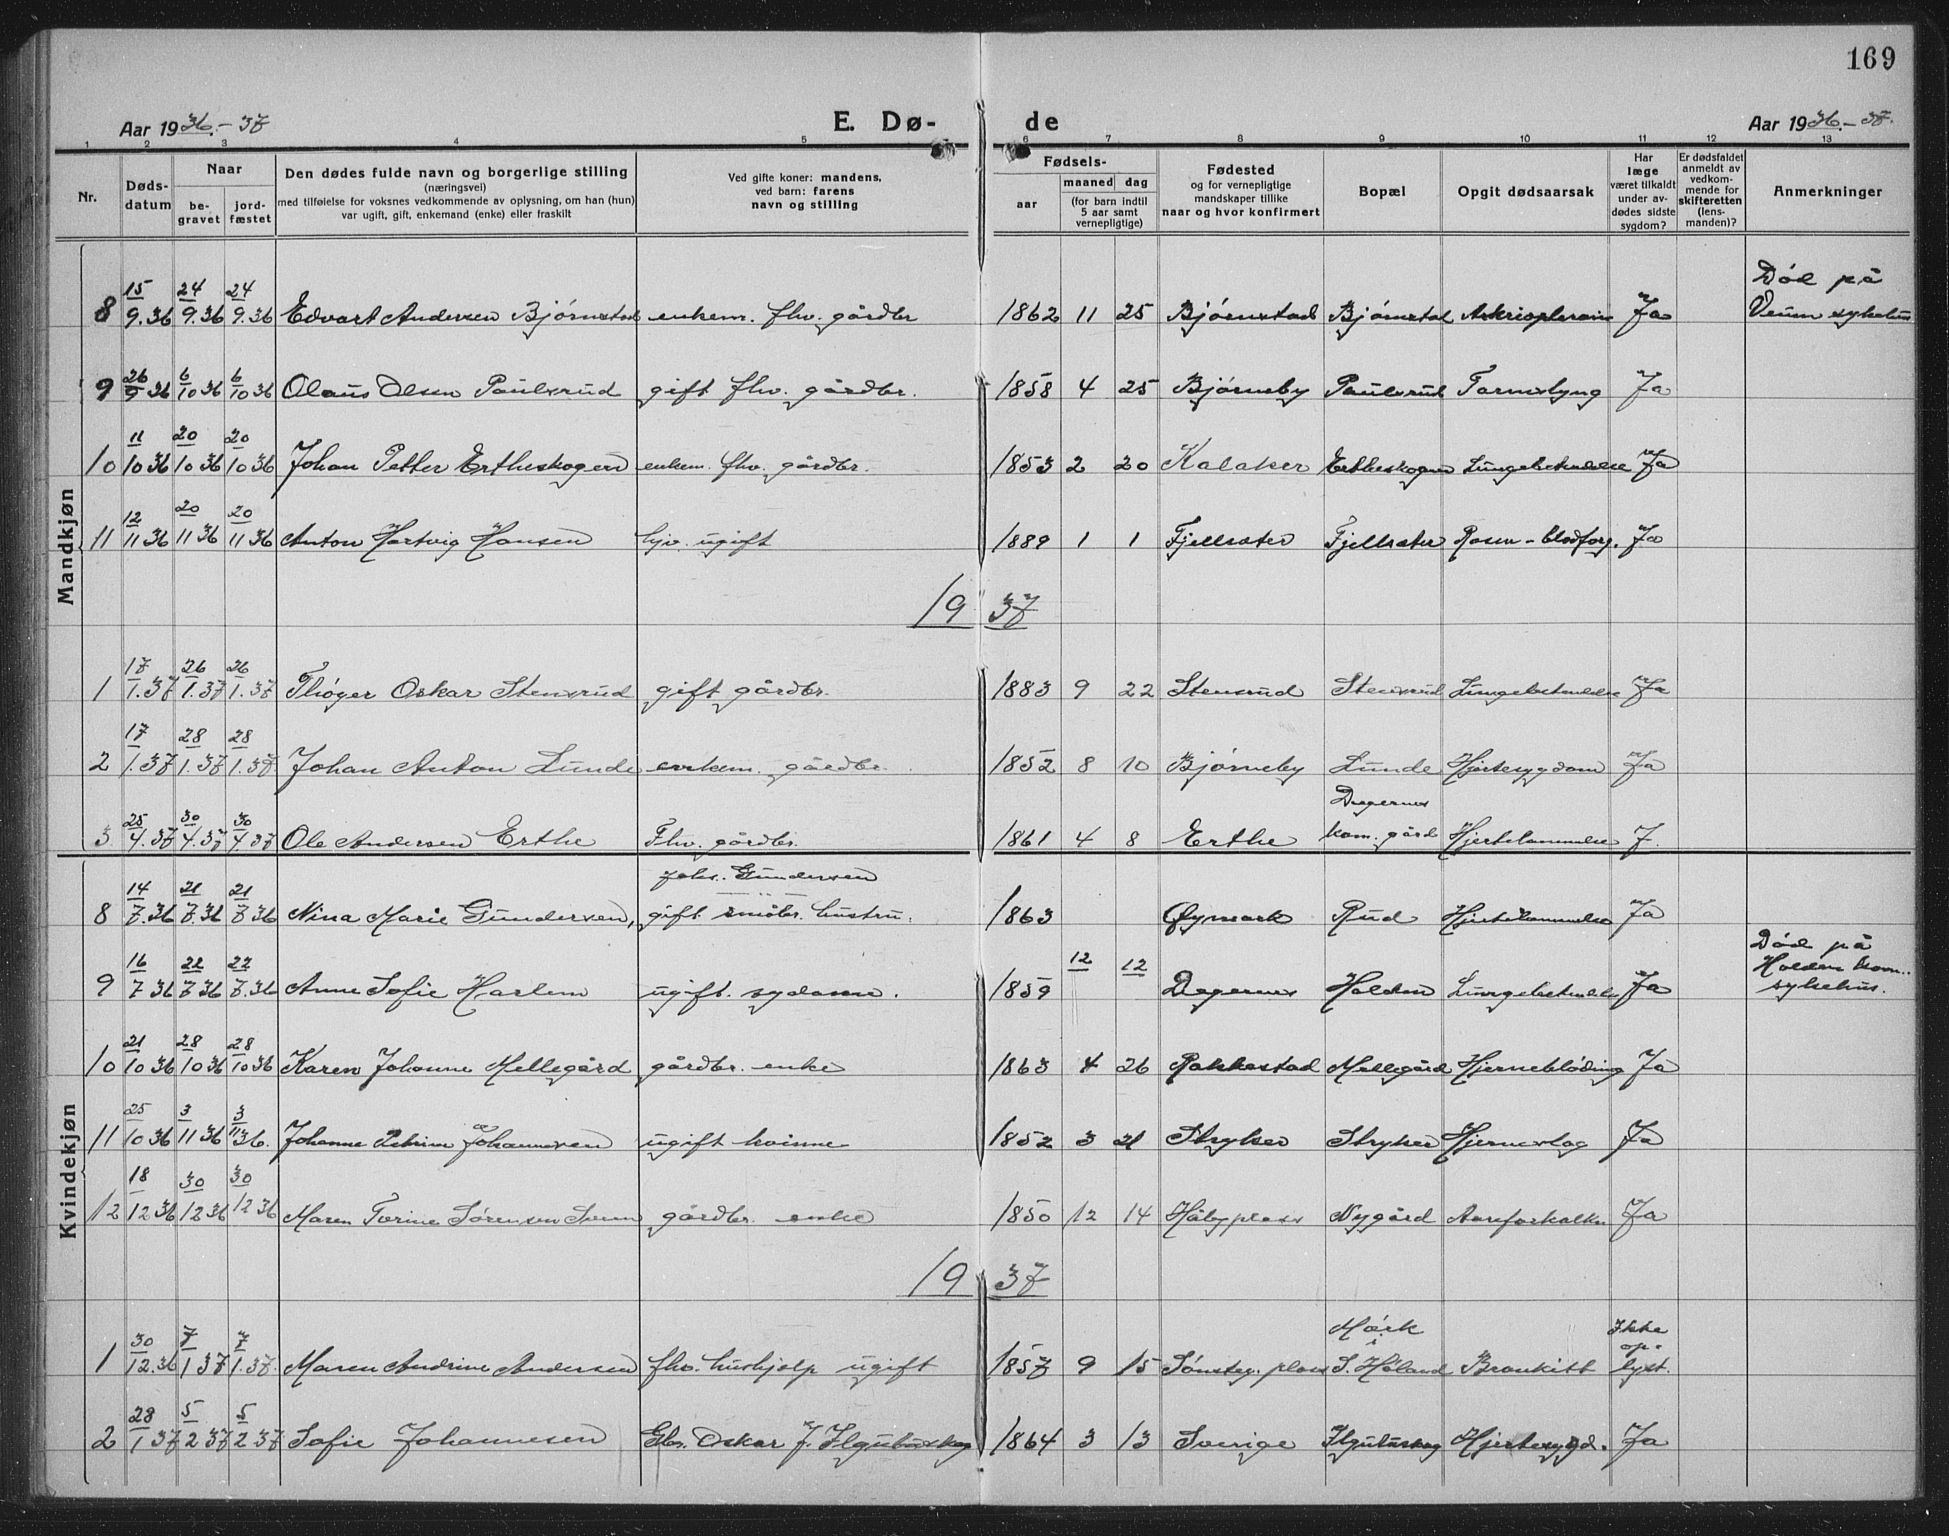 169
Aar 1936.-37 E. Dø- de Aar 1936.-37.
1 2 3 4 5 6 7 8 9 10 11 12 13
Nr. Døds-datum Naar be-gravet jord-fæstet Den dødes fulde navn og borgerlige stilling (næringsvei) med tilføielse for voksnes vedkommende av oplysning, om han (hun) var ugift, gift, enkemand (enke) eller fraskilt Ved gifte koner: mandens, ved barn: farens navn og stilling Fødsels- aar maaned dag (for barn indtil 5 aar samt vernepligtige) Fødested og for vernepligtige mandskaper tillike naar og hvor konfirmert Bopæl Opgit dødsaarsak Har læge været tilkaldt under av-dødes sidste sygdom? Er dødsfaldet anmeldt av vedkom-mende for skifteretten (lens-manden)? Anmerkninger
Mandkjøn
8 15/9.36 24/9.36 24/9.36 Edvart Andersen Bjørnstad enkem. fhv. gårdbr 1862 11 25 Bjørnstad Bjørnstad Ja Død på Veum sykehus
9 26/9 36 6/10 36 6/10 36 Olaus Olsen Paulsrud gift fhv. gårdbr. 1858 4 25 Bjørneby Paulsrud Tarmslyng Ja
10 11/10 36 20/10 36 20/10 36 Johan Petter Ertheskogen enkem. fhv. gårdbr. 1853 2 20 Kalaker Ertheskogen Lungebetendelse Ja
11 12/11 36 20/11 36 20/11 36 Anton Hartvig Hansen ugift 1889 1 1 Fjellsæter Fjellsæter Rosen - blodforg. Ja
1937
1 17/1.37 26/1.37 26/1.37 Thøger Oskar Stensrud gift gårdbr. 1883 9 22 Stensrud Stensrud Lungebetendelse Ja
2 17/1.37 28/1.37 28/1.37 Johan Anton Lunde enkem. gårdbr. 1852 8 10 Bjørneby Lunde Hjertesygdom Ja
3 25/4.37 30/4.37 30/4 37 Ole Andersen Erthe Fhv. gårdbr. 1861 4 8 Erthe Degernes kom. gård Hjertelammelse J.
Kvindekjøn
8 14/7.36 21/7.36 21/7 36 Nina Marie Gundersen, Johs. Gundersen gift småbr. hustru. 1863 Øymark Rud Hjertelammelse Ja
9 16/7 36 22/7 36 22/7.36 Anne Sofie Harlem ugift. sydame. 1859 12 12 Degernes Halden Lungebetendelse Ja Død på Halden kom. sykehus.
10 21/10 36 28/10 36 28/10 36 Karen Johanne Mellegård gårdbr. enke 1863 4 26 Rakkestad Mellegård Hjerneblødning Ja
11 25/10 36 3/11 36 3/11 36. Johanne Petrine Johannesen ugift kvinne 1852 3 21 Stryker Stryker Hjerneslag Ja
12 18/12 36 30/12 36 30/12 36 Maren Torine Sørensen gårdbr. enke 1850 12 14 Håbyplass Nygård Aareforkalkn Ja
1937
1 30/12.36 7/1 37 7/1.37. Maren Andrine Andersen fhv. hushjelp ugift 1857 9 15 Sønsteg. plass Mørk i S. Høland Bronkitt Ikke op-lyst.
2 28/1 37 5/2 37 5/2 37 Sofie Johannesen Gbr. Oskar J. 1864 3 13 Sverige Hjertesygd. Ja